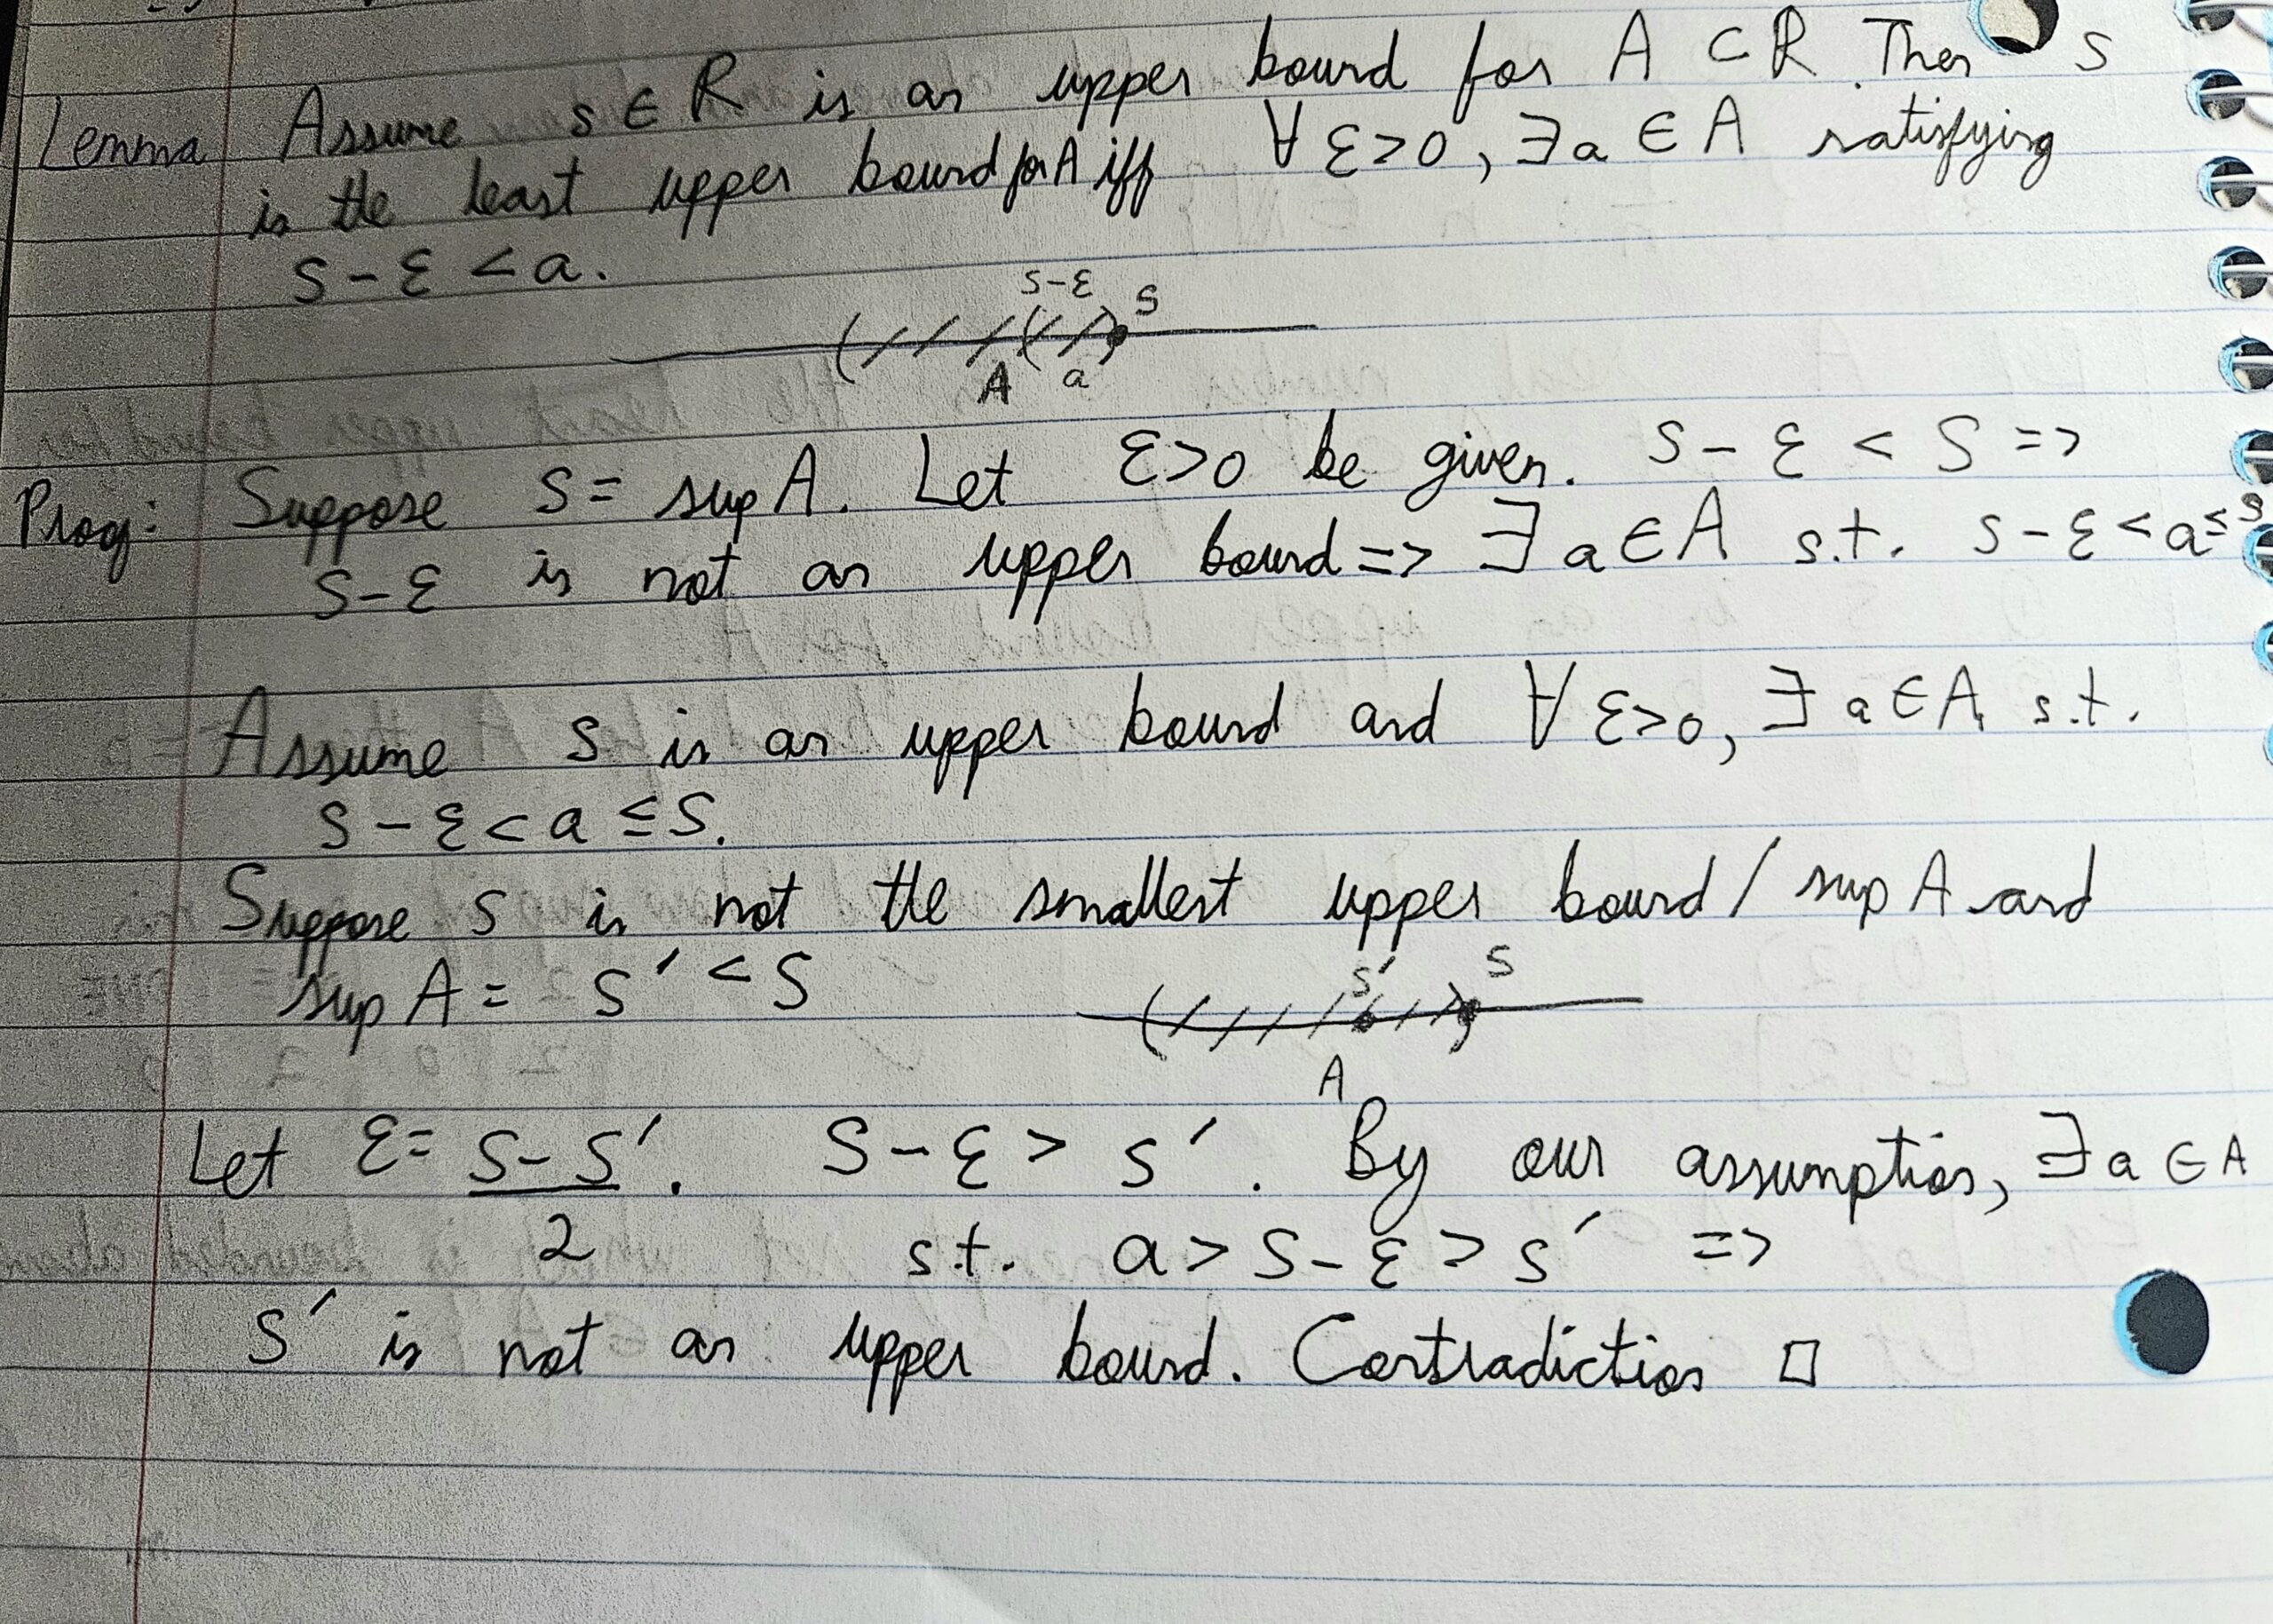 Lemma Assume s ∈ R is an upper bound for A ⊂ R. Then s
is the least upper bound for A iff ∀ ε>0, ∃a ∈ A satisfying
s - ε < a.
s-ε s
A a
Proof: Suppose s = sup A. Let ε>0 be given. s - ε < s =>
s-ε is not an upper bound => ∃ a ∈ A s.t. s - ε < a ≤ s
Assume s is an upper bound and ∀ ε>0, ∃ a ∈ A s.t.
s - ε < a ≤ s.
Suppose s is not the smallest upper bound / sup A and
sup A = s' < s
s' s
A
Let ε = (s - s')/2. s - ε > s'. By our assumption, ∃ a ∈ A
s.t. a > s - ε > s' =>
s' is not an upper bound. Contradiction □